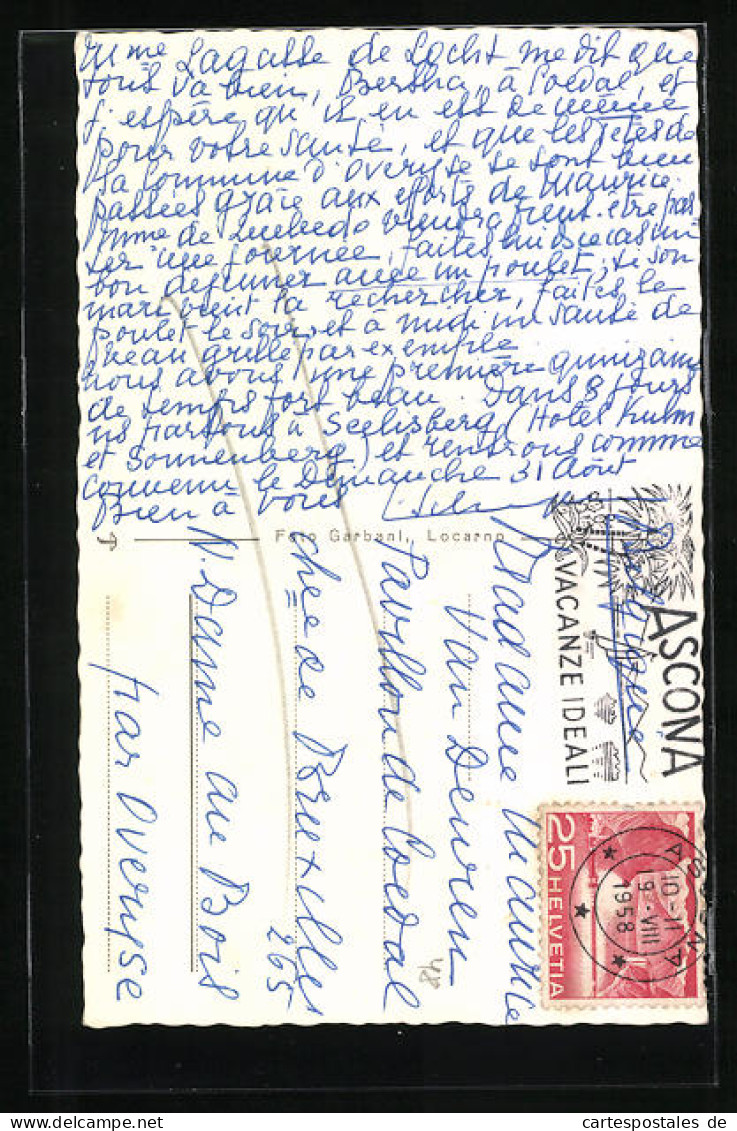 Mme Lagasse de Locht me dit que
tous va bien, Bertha, à Coedal, et
j'espère qu'il en est de même
pour votre santé, et que les fêtes de
la Commune d'Overyse se sont bien
passées grâce aux efforts de Maurice.
Mme de Quebedo viendra peut-être pas
ser une journée, faites lui dsce cas un
bon déjeuner avec un poulet; si son
mari vient la rechercher, faites le
poulet le soir et à midi un sauté de
veau grillé par exemple
nous avons une première quinzaine
de temps fort beau. Dans 8 jours
ns partons à Seelisberg (Hotel Kulm
et Sonnenberg) et rentrons comme
convenu le Dimanche 31 Août
Bien à vous
Foto Garbani, Locarno
Madame Maurice
Van Deuren
Pavillon de Coedal
chée de Bruxelles
265
N. Dame au Bois
par Overyse
Belgique
48
ASCONA
VACANZE IDEALI
25 HELVETIA
ASCONA
10-11
9.VIII
1958
cartespostales de